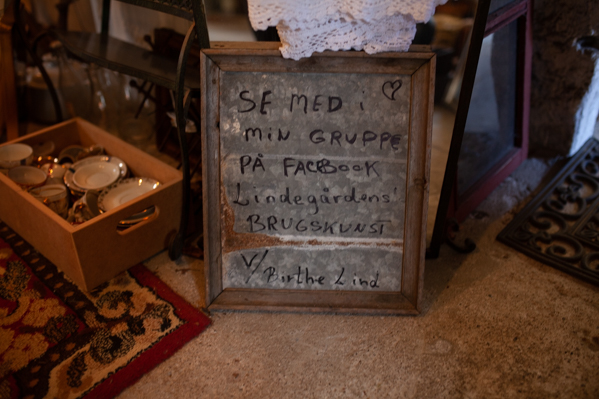 SE MED i ♡
MIN GRUPPE
PÅ FACEBOOK
Lindegårdens'
BRUGSKUNST
V/ Birthe Lind